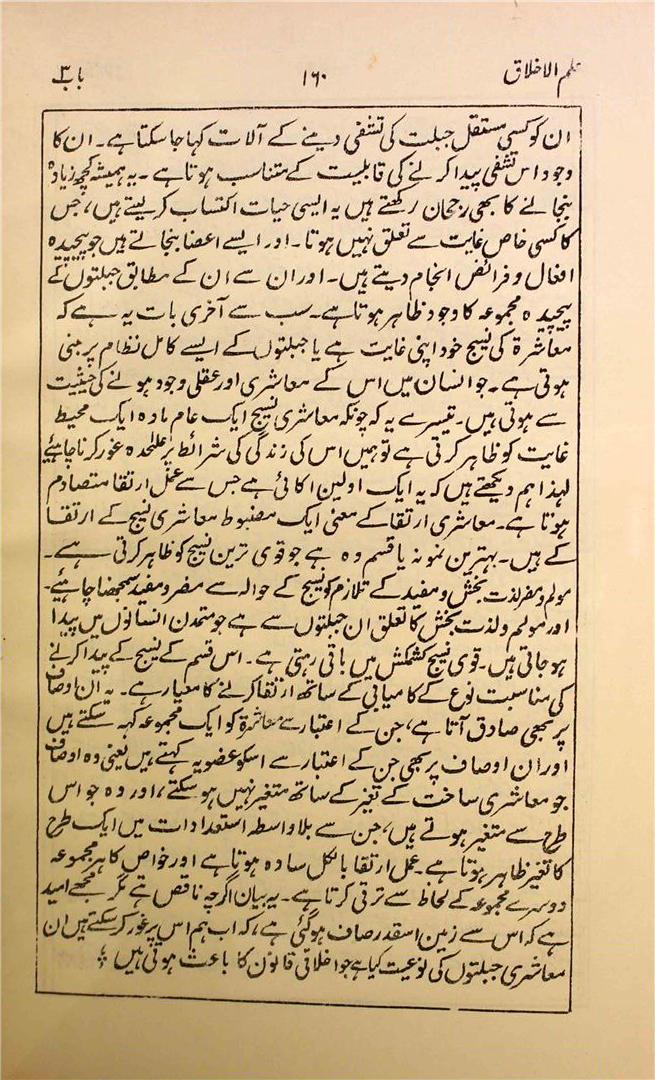 علم الاخلاق
۱۶۰
باب ۳
ان کو کسی مستقل جبلت کی تشفی دینے کے آلات کہا جا سکتا ہے۔ ان کا
وجود اس تشفی پیدا کرنے کی قابلیت کے متناسب ہوتا ہے۔ یہ ہمیشہ کچھ زیادہ
بنجانے کا بھی رجحان رکھتے ہیں یہ ایسی حیات اکتساب کر لیتے ہیں، جس
کا کسی خاص غایت سے تعلق نہیں ہوتا۔ اور ایسے اعضا بنجاتے ہیں جو پیچیدہ
افعال و فرائض انجام دیتے ہیں۔ اور ان سے ان کے مطابق جبلتوں کے
پیچیدہ مجموعہ کا وجود ظاہر ہوتا ہے۔ سب سے آخری بات یہ ہے کہ
معاشرۃ کی نسیج خود اپنی غایت ہے یا جبلتوں کے ایسے کامل نظام پر مبنی
ہوتی ہے۔ جو انسان میں اس کے معاشری اور عقلی وجود ہونے کی حیثیت
سے ہوتی ہیں۔ تیسرے یہ کہ چونکہ معاشری نسیج ایک عام مادہ ایک محیط
غایت کو ظاہر کرتی ہے تو ہمیں اس کی زندگی کی شرائط پر علٰحدہ غور کرنا چاہئے
لہذا ہم دیکھتے ہیں کہ یہ ایک اولین اکائی ہے جس سے عمل ارتقا متصادم
ہوتا ہے۔ معاشری ارتقا کے معنی ایک مضبوط معاشری نسیج کے ارتقا
کے ہیں۔ بہترین نمونہ یا قسم وہ ہے جو قوی ترین نسیج کو ظاہر کرتی ہے۔
مولم و مضر لذت بخش و مفید کے تلازم کو نسیج کے حوالہ سے مضر و مفید سمجھنا چاہیے۔
اور مولم و لذت بخش کا تعلق ان جبلتوں سے ہے جو متمدن انسانوں میں پیدا
ہو جاتی ہیں۔ قوی نسیج کشمکش میں باقی رہتی ہے۔ اس قسم کے نسیج کے پیدا کرنے
کی مناسبت نوع کے کامیابی کے ساتھ ارتقا کرنے کا معیار ہے۔ یہ ان اوصاف
پر بھی صادق آتا ہے، جن کے اعتبار سے معاشرۃ کو ایک مجموعہ کہہ سکتے ہیں
اور ان اوصاف پر بھی جن کے اعتبار سے اسکو عضویہ کہتے ہیں یعنی وہ اوصاف
جو معاشری ساخت کے تغیر کے ساتھ متغیر نہیں ہو سکتے، اور وہ جو اس
طرح سے متغیر ہوتے ہیں، جن سے بلا واسطہ استعدادات میں ایک طرح
کا تغیر ظاہر ہوتا ہے۔ عمل ارتقا بالکل سادہ ہوتا ہے اور خواص کا ہر مجموعہ
دوسرے مجموعہ کے لحاظ سے ترقی کرتا ہے۔ یہ بیان اگرچہ ناقص ہے مگر مجھے امید
ہے کہ اس سے زمین اسقدر صاف ہو گئی ہے، کہ اب ہم اس پر غور کر سکتے ہیں ان
معاشری جبلتوں کی نوعیت کیا ہے جو اخلاقی قانون کا باعث ہوتی ہیں ؛